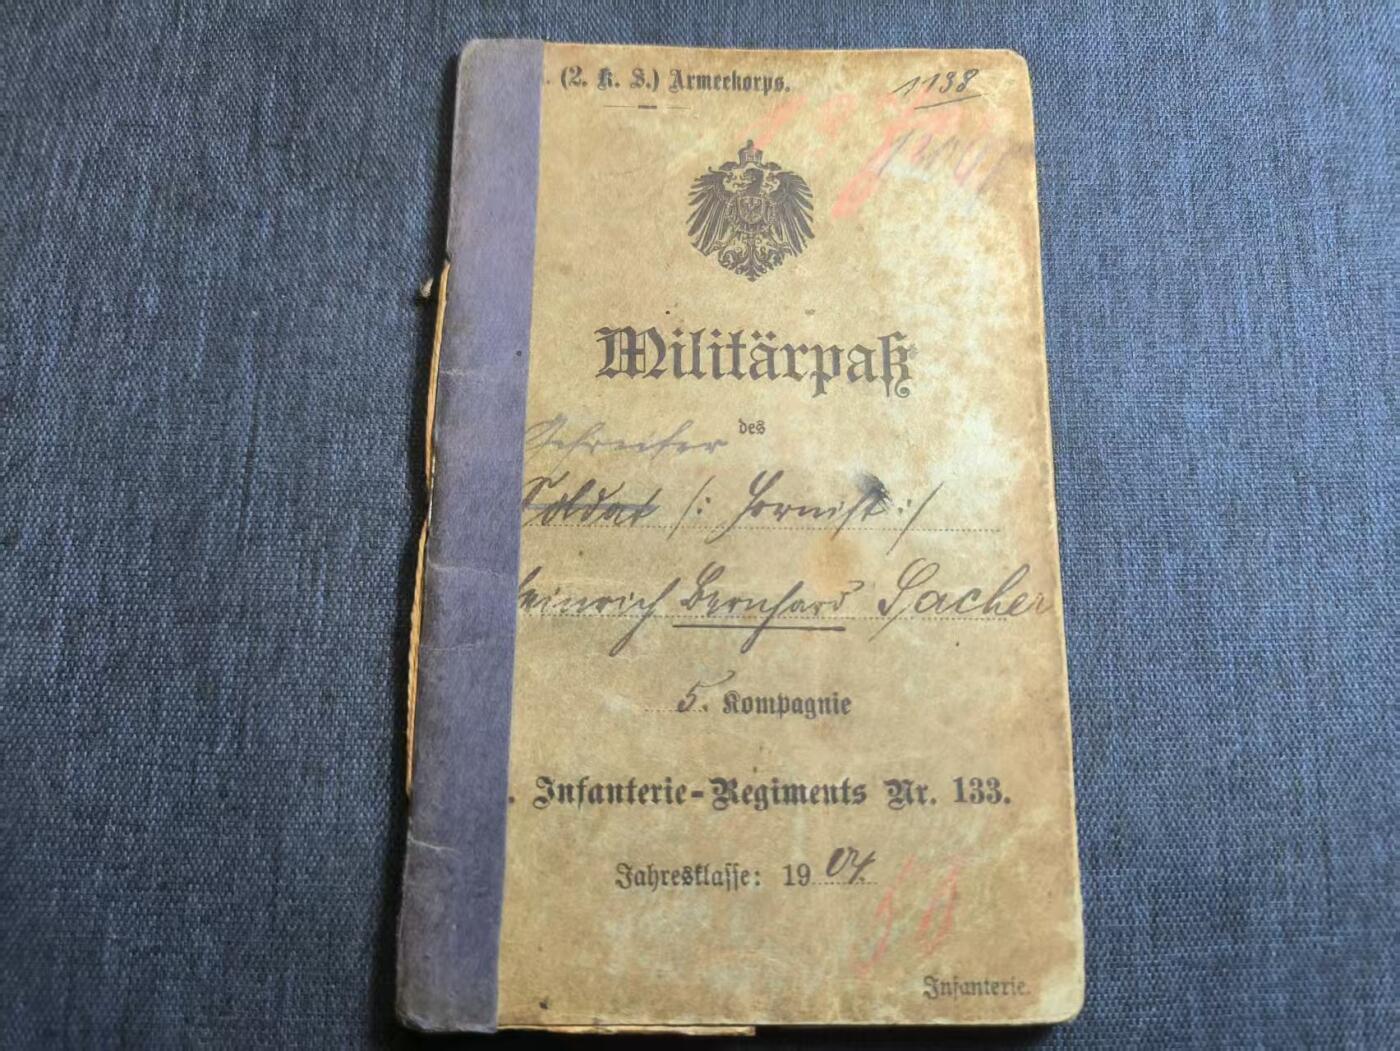 . (2. K. S.) Armeekorps.
1138
Militärpaß
des
Soldat /: Hornist :/
einrich Bernhard Sacher
5. Kompagnie
. Infanterie-Regiments Nr. 133.
Jahresklasse: 19 04.
Infanterie.